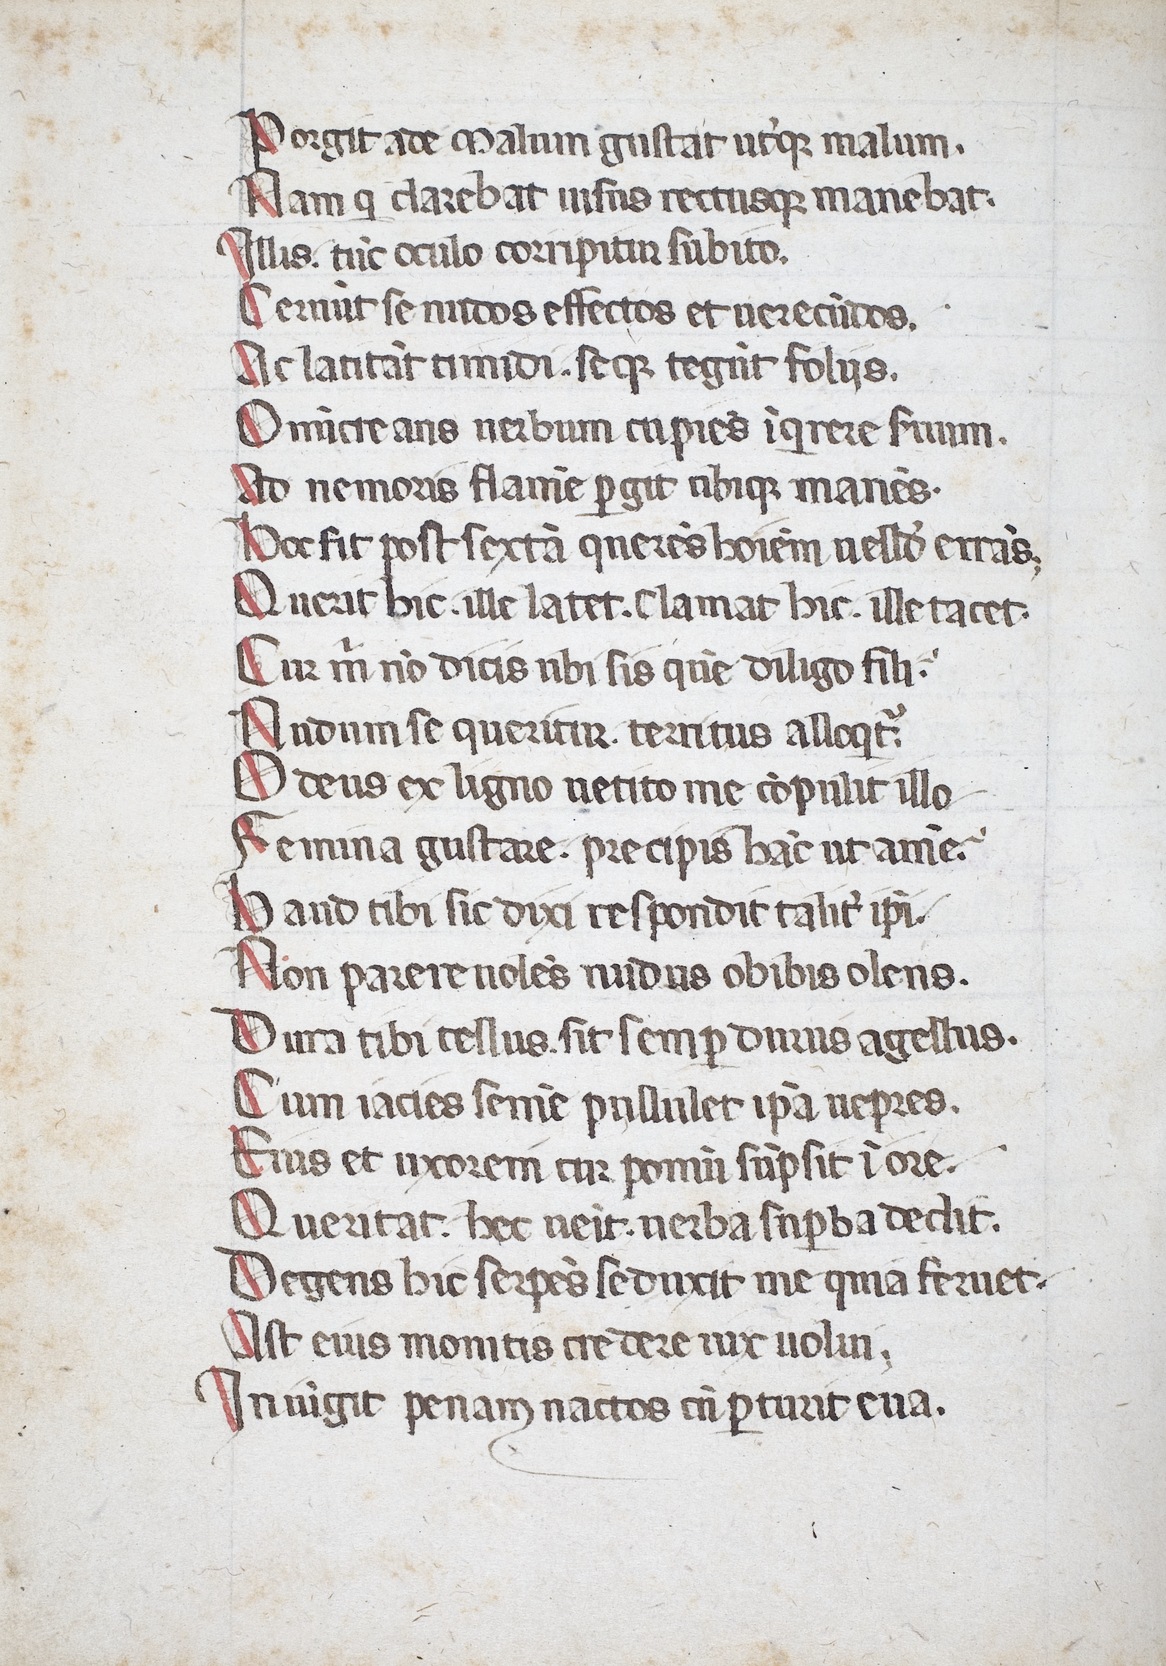 Porgit ade Malum gustat ut'qꝫ malum.
Nam q clarebat uisus rectusqꝫ manebat.
Illis. tūc oculo corripitur subito.
Cernūt se nudos effectos et uerecūdos.
Ac latitāt timidi. seqꝫ tegūt folijs.
Omicte ans uerbum cupiēs īq̇rere suum.
Ad nemoris flamē ꝑgit ubiqꝫ manēs.
Hoc fit post sextā querēs hoīem uelłd' errās;
Querit hic. ille latet. Clamat hic. ille tacet.
Cur m̊ nō dicis ubi sis quē diligo fili.
Nudum se queritur. territus alloqt᷑.
O deus ex ligno uetito me cōpulit illo
Femina gustare. precipis hāc ut amē.
Haud tibi sic dixi respondit talit' ip̄i.
Non parere uolēs nudus obibis olens.
Dura tibi tellus. sit semꝑ durus agellus.
Cum iacies semē pullulet ip̄a uepres.
Eius et uxorem cur pomū sūpsit ī ore.
Queritat. hec ueit. uerba suꝑba dedit.
Degens hic serpēs seduxit me quia feruet.
Ast eius monitis credere uix uolui;
In iūgit penam nactos cū ꝑturit eua.